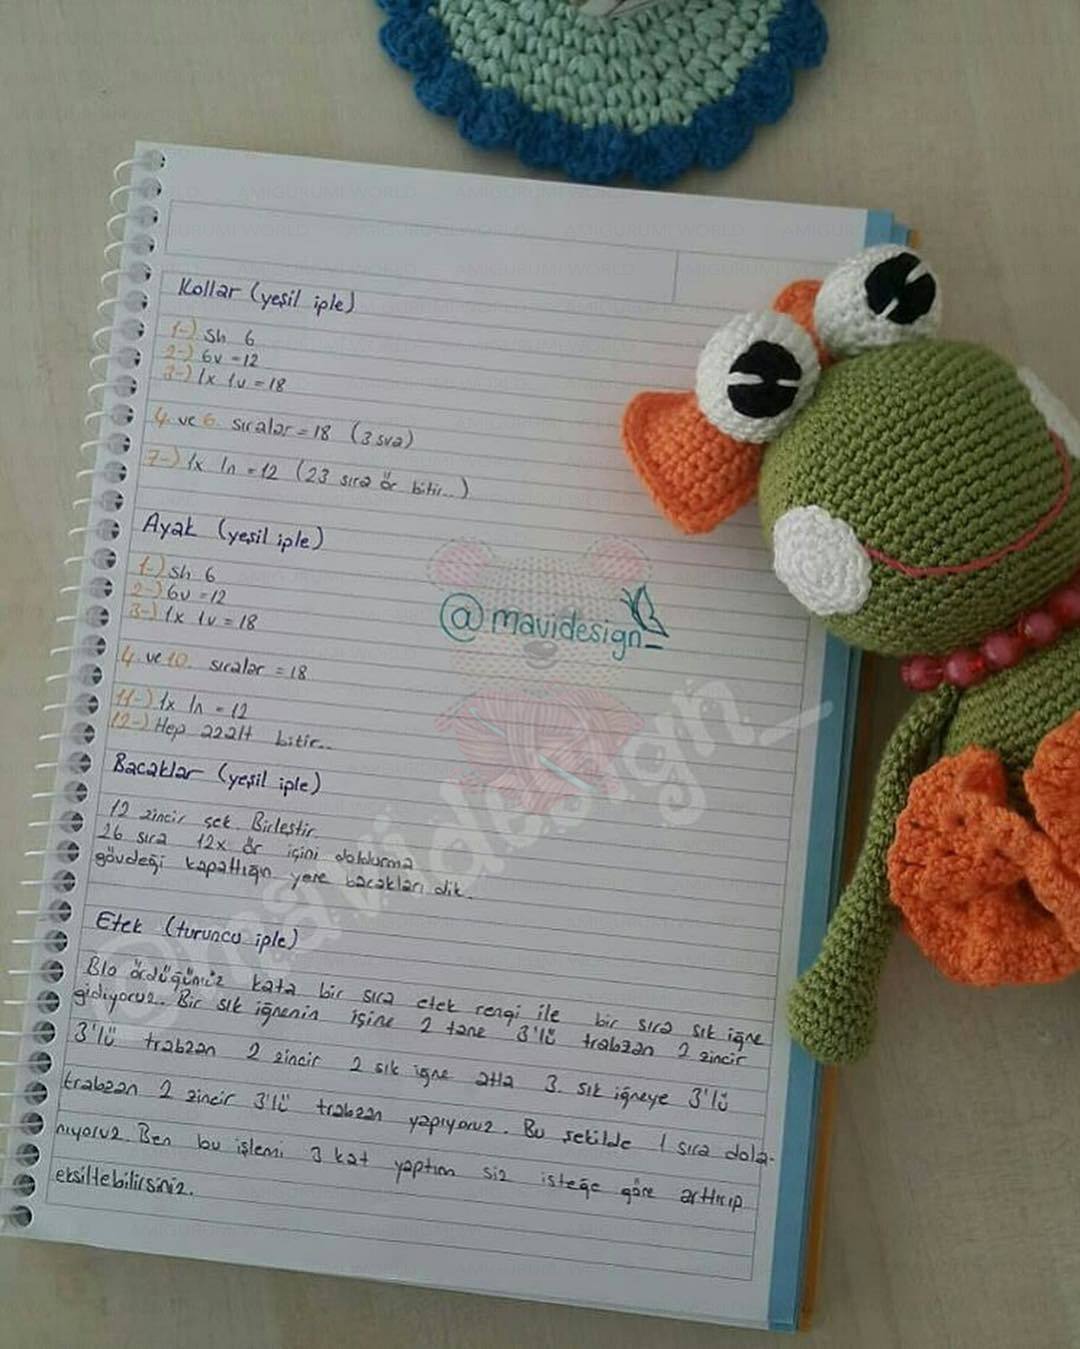 Kollar (yeşil iple)
1-) Sh 6
2-) 6v = 12
3-) 1x 1v = 18
4. ve 6. sıralar = 18 (3 sıra)
7-) 1x 1n = 12 (23 sıra ör bitir..)
Ayak (yeşil iple)
1-) Sh 6
2-) 6v = 12
3-) 1x 1v = 18
4. ve 10. sıralar = 18
11-) 1x 1n = 12
12-) Hep azalt bitir..
Bacaklar (yeşil iple)
12 zincir çek. Birleştir.
26 sıra 12x ör içini doldurma
gövdeği kapattığın yere bacakları dik.
Etek (turuncu iple)
Blo ördüğümüz kata bir sıra etek rengi ile bir sıra sık iğne
gidiyoruz. Bir sık iğnenin içine 2 tane 3'lü trabzan 2 zincir
3'lü trabzan 2 zincir 2 sık iğne atla 3. sık iğneye 3'lü
trabzan 2 zincir 3'lü trabzan yapıyoruz. Bu şekilde 1 sıra dola-
nıyoruz. Ben bu işlemi 3 kat yaptım siz isteğe göre arttırıp
eksiltebilirsiniz.
@mavidesign_
@mavidesign_
AMIGURUMI WORLD